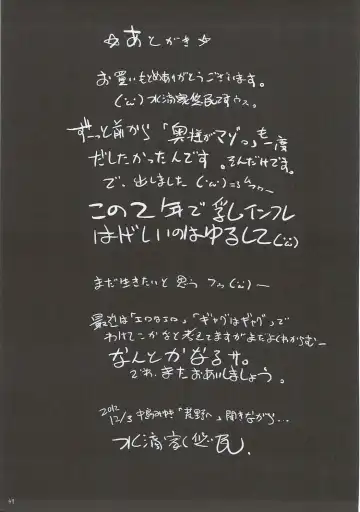 ☆あとがき☆
お買いもとめありがとうございます。
(;ω;) 水滴寔悠民ですウス。
ずーっと前から「奥様がマゾっ」も一度
だしたかったんです。そんだけです。
で、出しました (;ω;)=3ムフー
この2年で乳インフレ
はげしいのはゆるして(;ω;)
まだ生きたいと思う フゥ(;ω;)ー
最近は「エロはエロ」「ギャグはギャグ」で
わけてこかなと考えてますがまだよくわからむー
なんとかなるサ。
でわ、またおあいしましょう。
2012
12/3 中島みゆき「荒野へ」聞きながら…
49